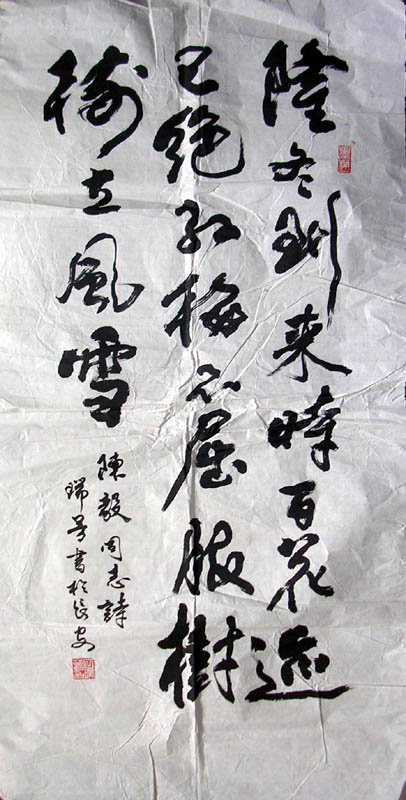 隆冬到来時百花迹
已绝红梅不屈服樹
樹立風雪
陳毅同志詩
瑞書於長安